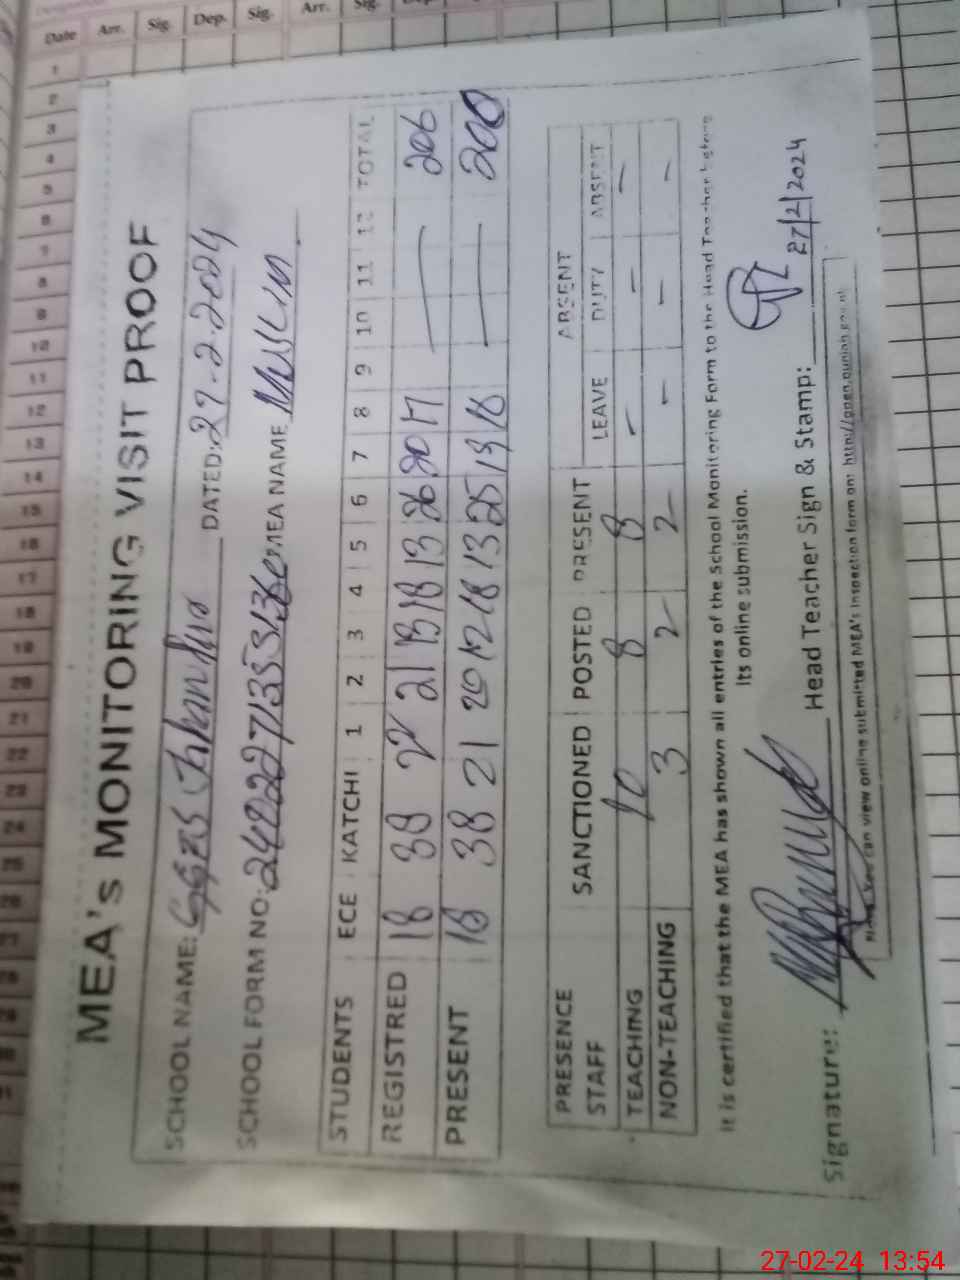 Date Arr. Sig. Dep. Sig. Arr. Sig.
MEA's MONITORING VISIT PROOF
SCHOOL NAME: DATED: 27-2-2024
SCHOOL FORM NO: MEA NAME
STUDENTS ECE KATCHI 1 2 3 4 5 6 7 8 9 10 11 12 TOTAL
REGISTRED 18 38 22 21 13 18 13 26 20 17 — 206
PRESENT 18 38 21 20 12 18 13 25 19 16 — 200
PRESENCE SANCTIONED POSTED PRESENT ABSENT
STAFF LEAVE DUTY ABSENT
TEACHING 10 8 8 - - -
NON-TEACHING 3 2 2 - - -
It is certified that the MEA has shown all entries of the School Monitoring Form to the Head Teacher before
its online submission.
Signature: Head Teacher Sign & Stamp: 27/2/2024
can view online submitted MEA's inspection form on: http://open.punjab.gov.pk
27-02-24 13:54